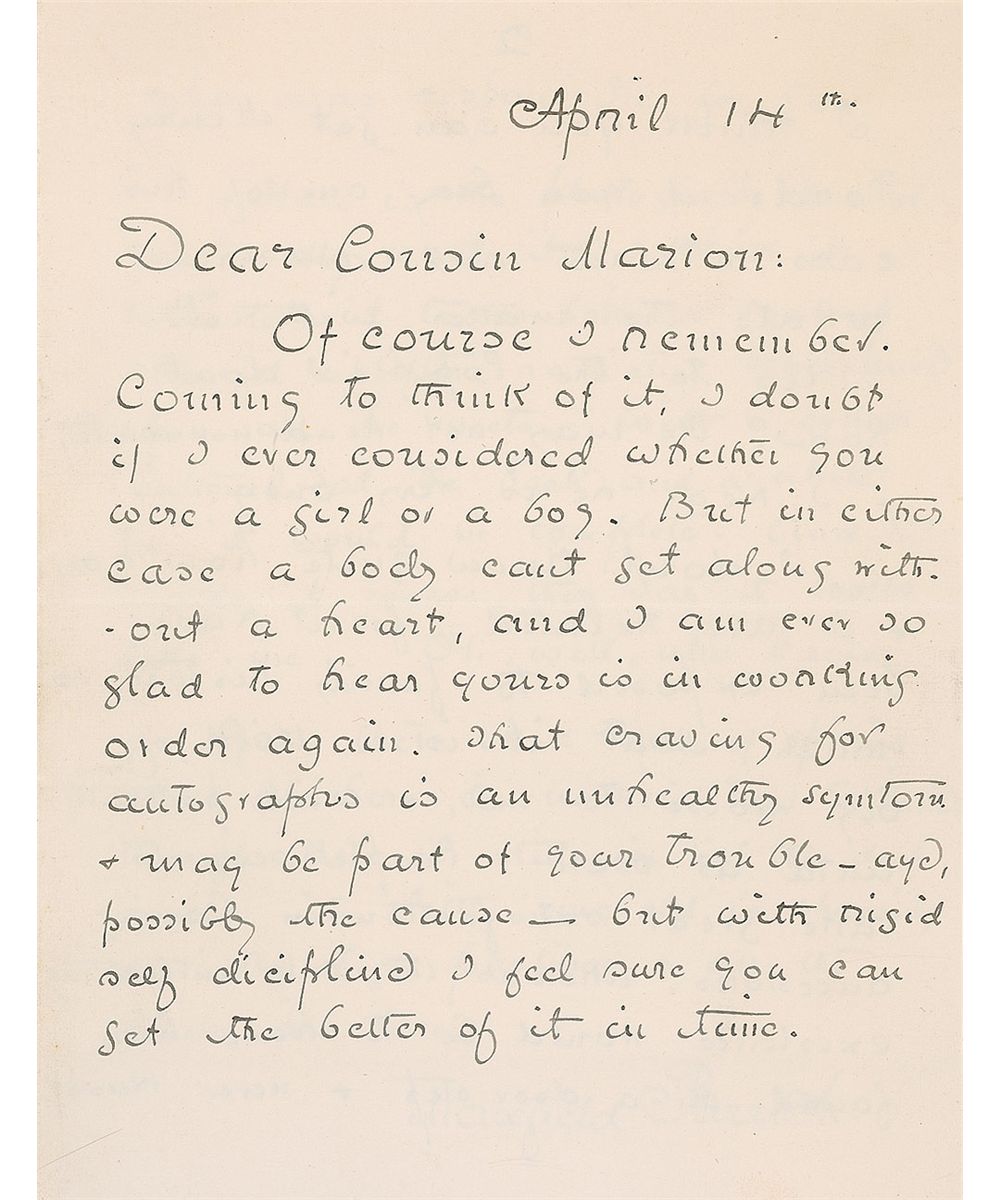 April 14th.
Dear Cousin Marion:
Of course I remember.
Coming to think of it, I doubt
if I ever considered whether you
were a girl or a boy. But in either
case a body cant get along with-
-out a heart, and I am ever so
glad to hear yours is in working
order again. That craving for
autographs is an unhealthy symtom
+ may be part of your trouble — aye,
possibly the cause — but with rigid
self dicipline I feel sure you can
get the better of it in time.